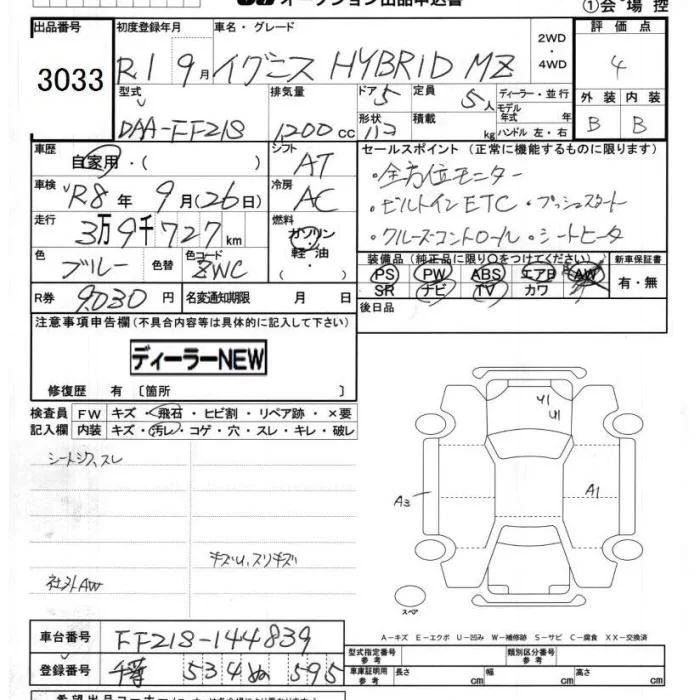 オークション出品申込書 ①会場控
出品番号 初度登録年月 車名・グレード 2WD・4WD 評価点
3033 R.1 9月 イグニス HYBRID MZ 4
型式 排気量 ドア 5 定員 5人 ディーラー・並行 外装 内装
DAA-FF21S 1,200cc 形状 積載 kg モデル年式 年 ハンドル 左・右 B B
車歴 自家用・( ) シフト AT セールスポイント (正常に機能するものに限ります)
車検 R8年 9月(26日) 冷房 AC ・全方位モニター
走行 3万9千727km 燃料 ガソリン・軽油・ ・ビルトインETC・プッシュスタート
色 ブルー 色替 色コード ZWC ・クルーズコントロール・シートヒータ
装備品 (純正品に限り○をつけてください) 新車保証書
PS PW ABS エアB AW 有・無
R券 9,030円 名変通知期限 月 日 SR ナビ TV カワ
後日品
注意事項申告欄 (不具合内容等は具体的に記入して下さい)
ディーラーNEW
修復歴 有 〔箇所 〕
検査員 FW キズ・飛石・ヒビ割・リペア跡・×要
記入欄 内装 キズ・汚レ・コゲ・穴・スレ・キレ・破レ
シートシワ、スレ
U1
U1
A3
A1
キズU、スリキズ
社外AW
スペア
A−キズ E−エクボ U−凹み W−補修跡 S−サビ C−腐食 XX−交換済
車台番号 FF21S-144839 型式指定番号 参考 類別区分番号 参考
登録番号 534 ぬ 595 車庫証明用 参考 長さ cm 幅 cm 高さ cm